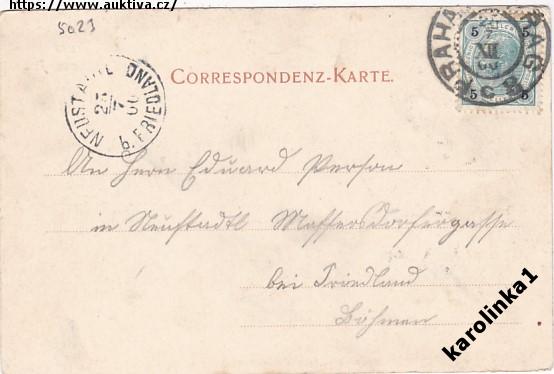 https://www.auktiva.cz/
5023
CORRESPONDENZ-KARTE.
NEUSTADTL b. FRIEDLAND
23/7 00
PRAHA PRAG
5 5
5 5
An Herrn Eduard Person
in Neustadtl Maffersdorfergasse
bei Friedland
Böhmen
karolinka1